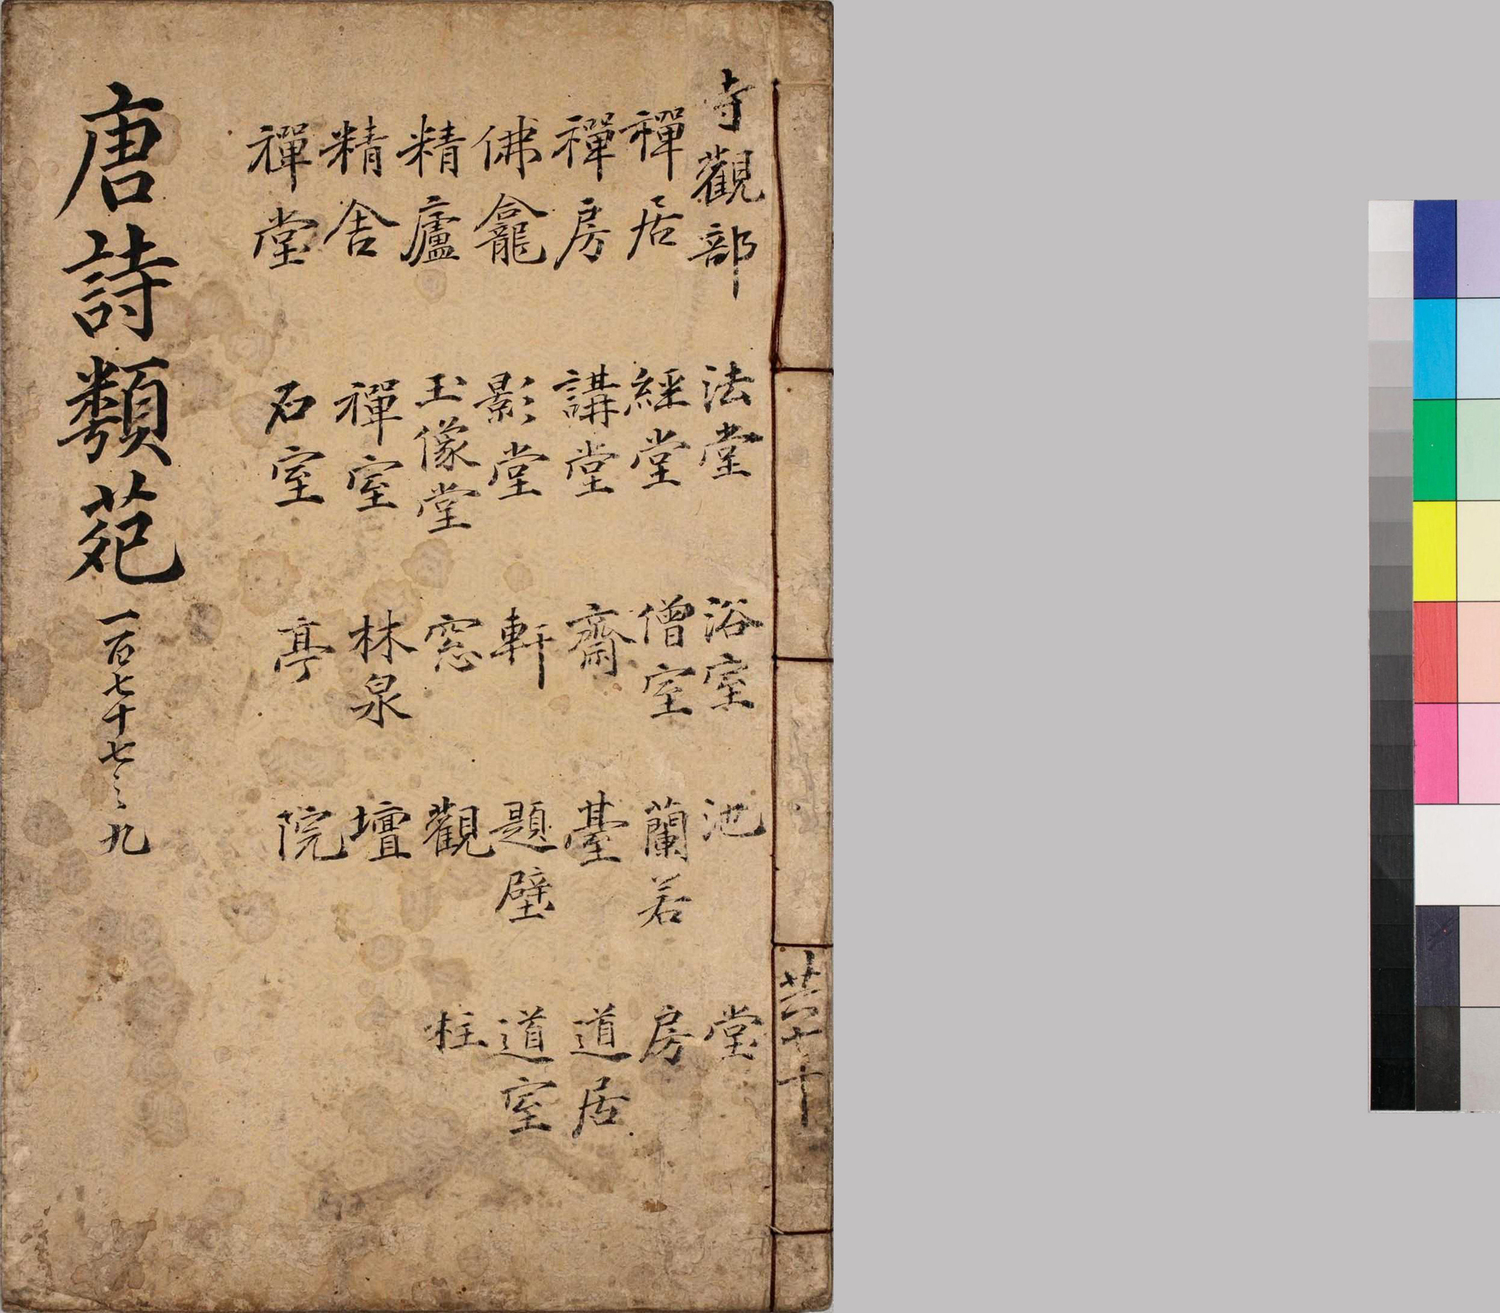 共七十
寺觀部
禪居
禪房
佛龕
精廬
精舍
禪堂
法堂
經堂
講堂
影堂
玉像堂
禪室
石室
浴室
僧室
齋
軒
窓
林泉
亭
池
蘭若
臺
題壁
觀
壇
院
堂
房
道居
道室
柱
唐詩類苑
一百七十七之九